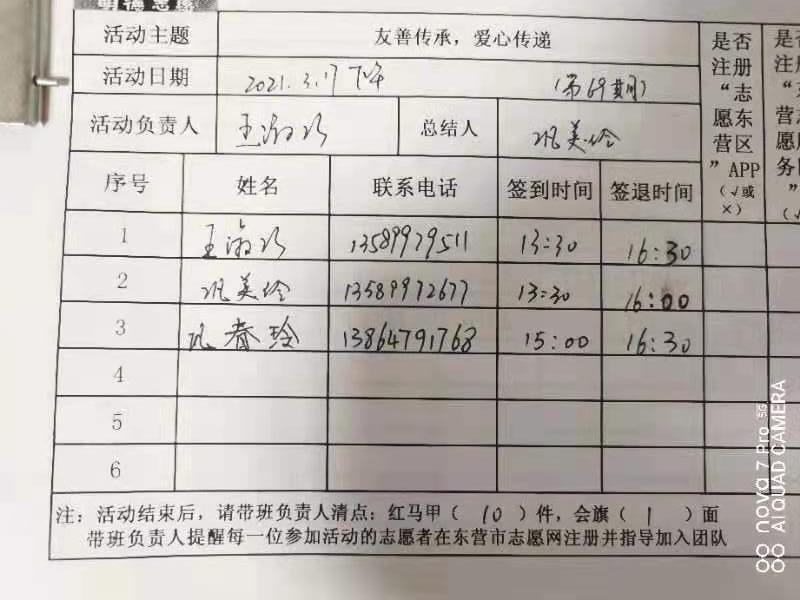 明德志愿
活动主题 友善传承，爱心传递
活动日期 2021.3.17 下午 (第69期)
活动负责人 王淑珍 总结人 巩美玲
是否注册“志愿东营区”APP（√或×）
序号 姓名 联系电话 签到时间 签退时间
1 王淑珍 13589979511 13:30 16:30
2 巩美玲 13589972677 13:30 16:00
3 巩春玲 13864791768 15:00 16:30
4
5
6
注：活动结束后，请带班负责人清点：红马甲（ 10 ）件，会旗（ 1 ）面
带班负责人提醒每一位参加活动的志愿者在东营市志愿网注册并指导加入团队
nova 7 Pro 5G
AI QUAD CAMERA